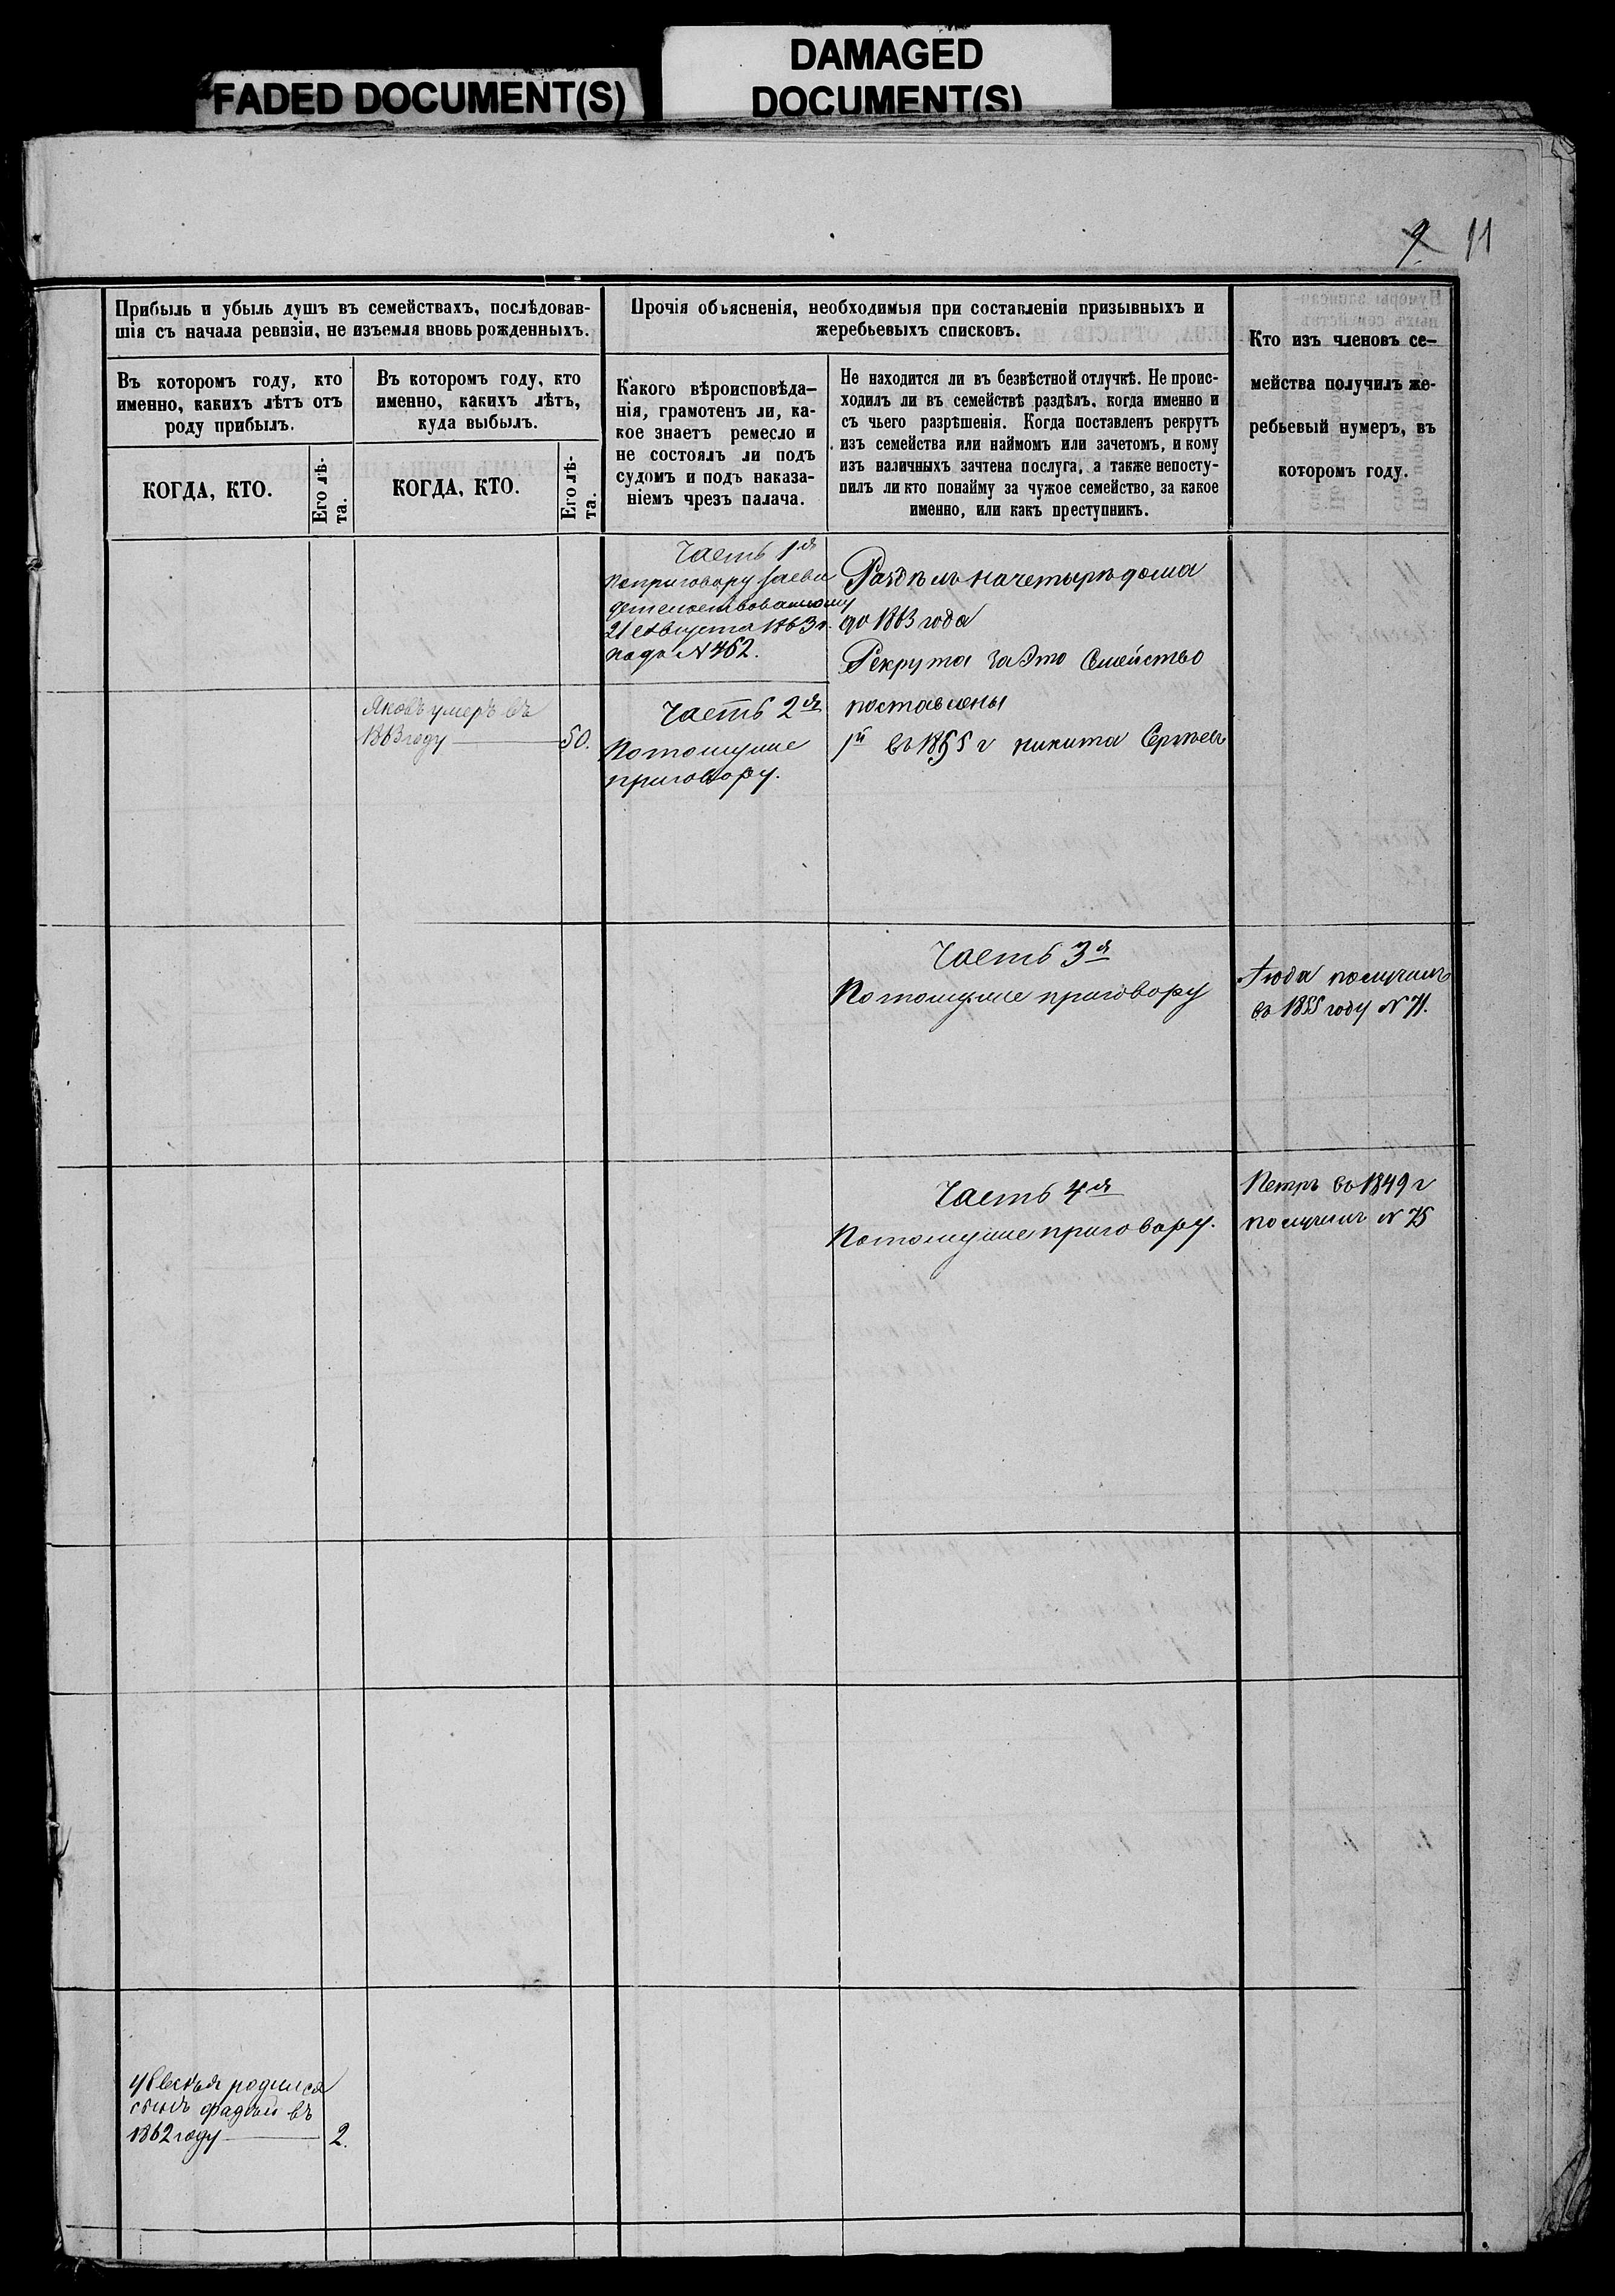 FADED DOCUMENT(S)
DAMAGED
DOCUMENT(S)
9 11
Прибыль и убыль душъ въ семействахъ, послѣдовав-
шія съ начала ревизіи, не изъемля вновь рожденныхъ.
Прочія объясненія, необходимыя при составленіи призывныхъ и
жеребьевыхъ списковъ.
Кто изъ членовъ се-
мейства получилъ же-
ребьевый нумеръ, въ
котормъ году.
Въ которомъ году, кто
именно, какихъ лѣтъ отъ
роду прибылъ.
Въ которомъ году, кто
именно, какихъ лѣтъ,
куда выбылъ.
Какого вѣроисповѣда-
нія, грамотенъ ли, ка-
кое знаетъ ремесло и
не состоялъ ли подъ
судомъ и подъ наказа-
ніемъ чрезъ палача.
Не находится ли въ безвѣстной отлучкѣ. Не проис-
ходилъ ли въ семействѣ раздѣлъ, когда именно и
съ чьего разрѣшенія. Когда поставленъ рекрутъ
изъ семейства или наймомъ или зачетомъ, и кому
изъ наличныхъ зачтена послуга, а также непосту-
пилъ ли кто понайму за чужое семейство, за какое
именно, или какъ преступникъ.
КОГДА, КТО.
Его лѣ-
та.
КОГДА, КТО.
Его лѣ-
та.
Часть 1я
по приговору засви
детельствованному
21 Августа 1863 г.
подъ № 462.
Раздѣлъ на четырѣ дома
до 1863 года
Рекрута за Это Семейство
поставлены
1й въ 1855 г никита
Яковъ умеръ въ
1863 году 50.
Часть 2я
Потомуже
приговору.
Часть 3я
Потомуже приговору
получилъ
въ 1855 году № 71.
Часть 4я
Потомуже приговору.
Петръ въ 1849 г
получилъ № 75
родился
сынъ фадѣй въ
1862 году 2.